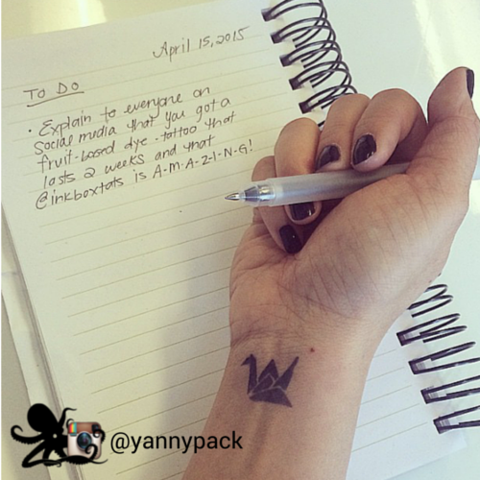 April 15, 2015
TO DO
• Explain to everyone on
social media that you got a
fruit-based dye-tattoo that
lasts 2 weeks and that
@inkboxtats is A-M-A-Z-I-N-G!
@yannypack